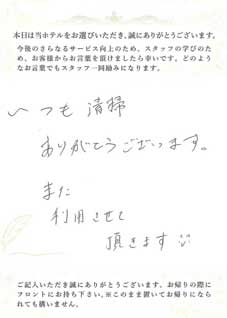 本日は当ホテルをお選びいただき、誠にありがとうございます。
今後のさらなるサービス向上のため、スタッフの学びのため、お客様からお言葉を頂けましたら幸いです。どのようなお言葉でもスタッフ一同励みになります。
いつも清掃
ありがとうございます。
また
利用させて
頂きます
ご記入いただき誠にありがとうございます。お帰りの際にフロントにお持ち下さい。※このまま置いてお帰りになられても構いません。